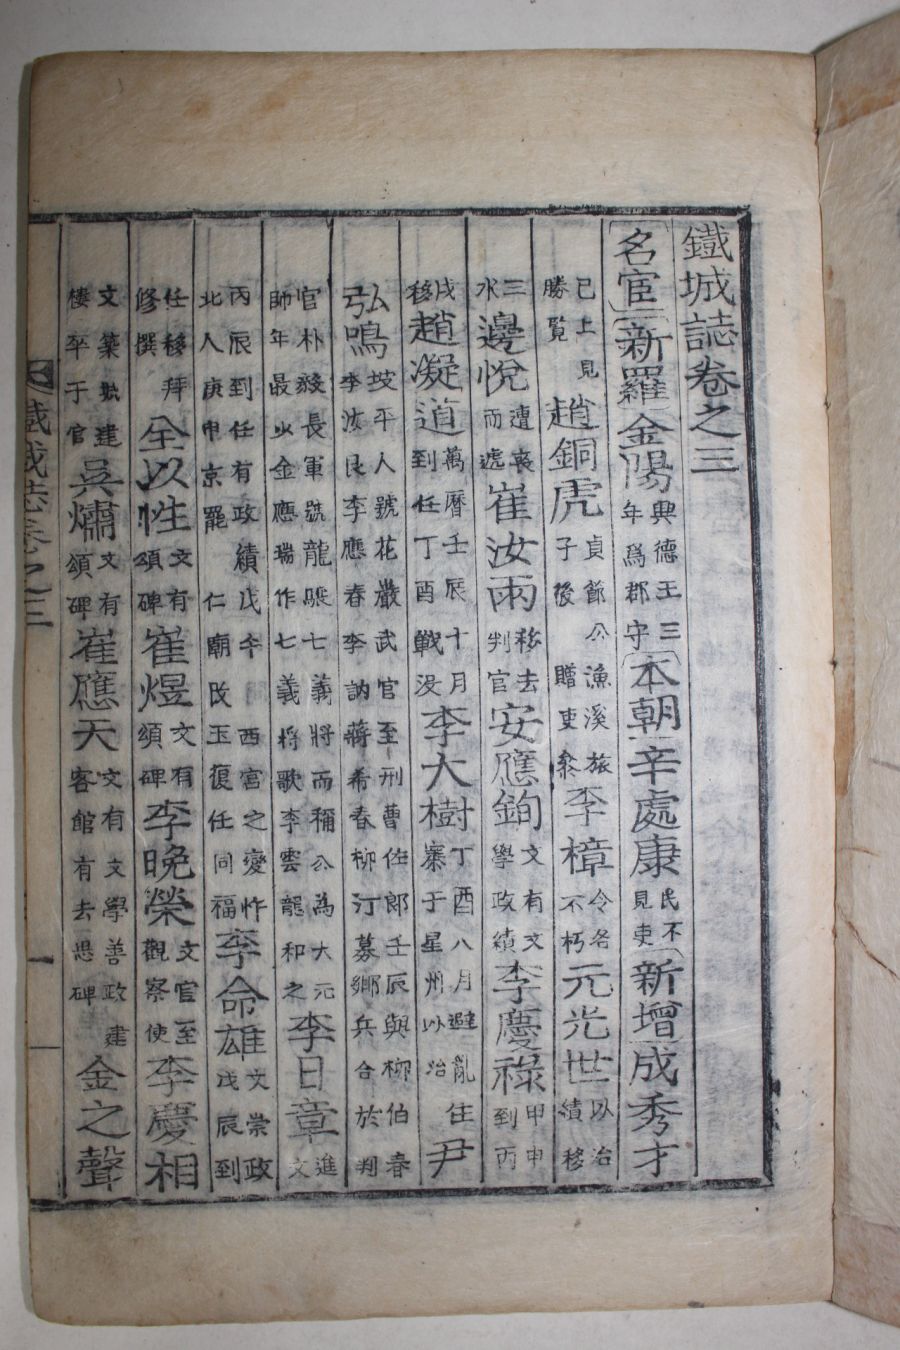 鐵城誌卷之三
名宦 新羅 金陽 興德王三年爲郡守 本朝 辛處康 民不見吏 新增 成秀才
已上見勝覽 趙銅虎 貞節公漁溪旅子後贈吏叅 李樟 令名不朽 元光世 以治績移
三水 邊悅 遭喪而遞 崔汝雨 移去判官 安應鉤 文有文學政績 李慶祿 甲申到丙
戌移 趙凝道 萬曆壬辰十月到任丁酉戰没 李大樹 丁酉八月避亂住寨于星州以治 尹
弘鳴 坡平人號花巖武官至刑曹佐郎壬辰與柳伯春李汝良李應春李訥蔣希春柳汀募鄕兵合於判
官朴毅長軍號龍驤七義將而稱公為大元師年最少金應瑞作七義將歌李雲龍和之 李日章 文進
丙辰到任有政績戊午 西宮之變忤北人庚申京罷 仁廟改玉復任同福 李命雄 文崇政戊辰到
任移拜修撰 全以性 文有頌碑 崔煜 文有頌碑 李晚榮 文官至觀察使 李慶相
文築建樓卒于官 吳 文有頌碑 崔應天 文有文學善政建客館有去思碑 金之聲
鐵城誌卷之三 一